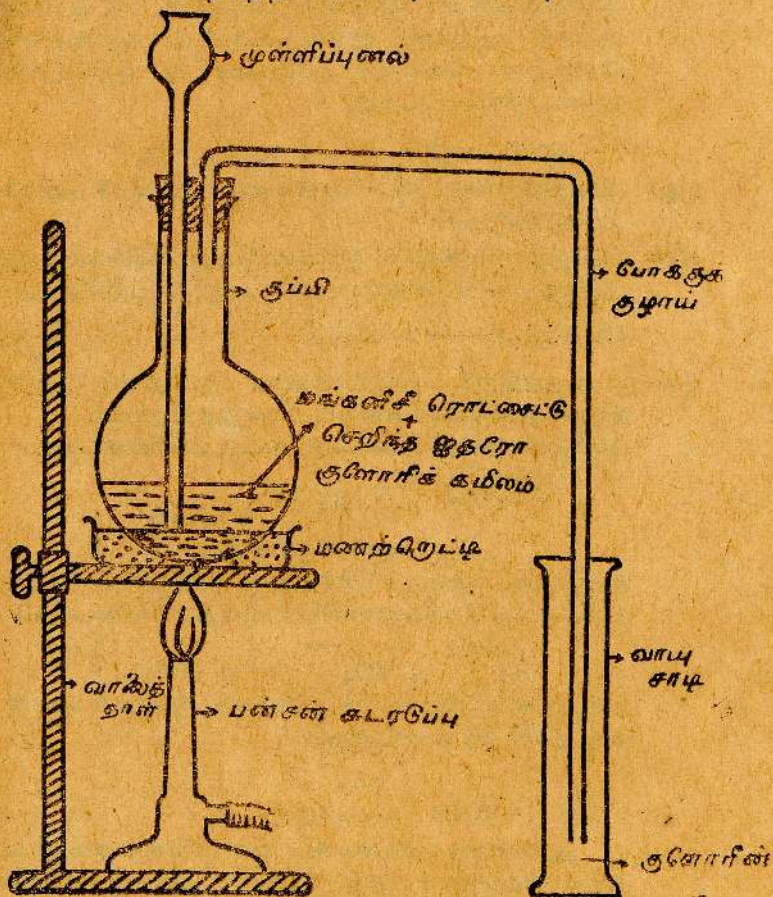 முள்ளிப்புனல்
போக்குக்
குழாய்
குப்பி
மங்கனீசீ ரொட்சைட்டு
+
செறிந்த ஐதரோ
குளோரிக் கமிலம்
மணற்றெட்டி
வாயு
சாடி
வாலைத்
தாள்
பன்சன் சுடரடுப்பு
குளோரின்